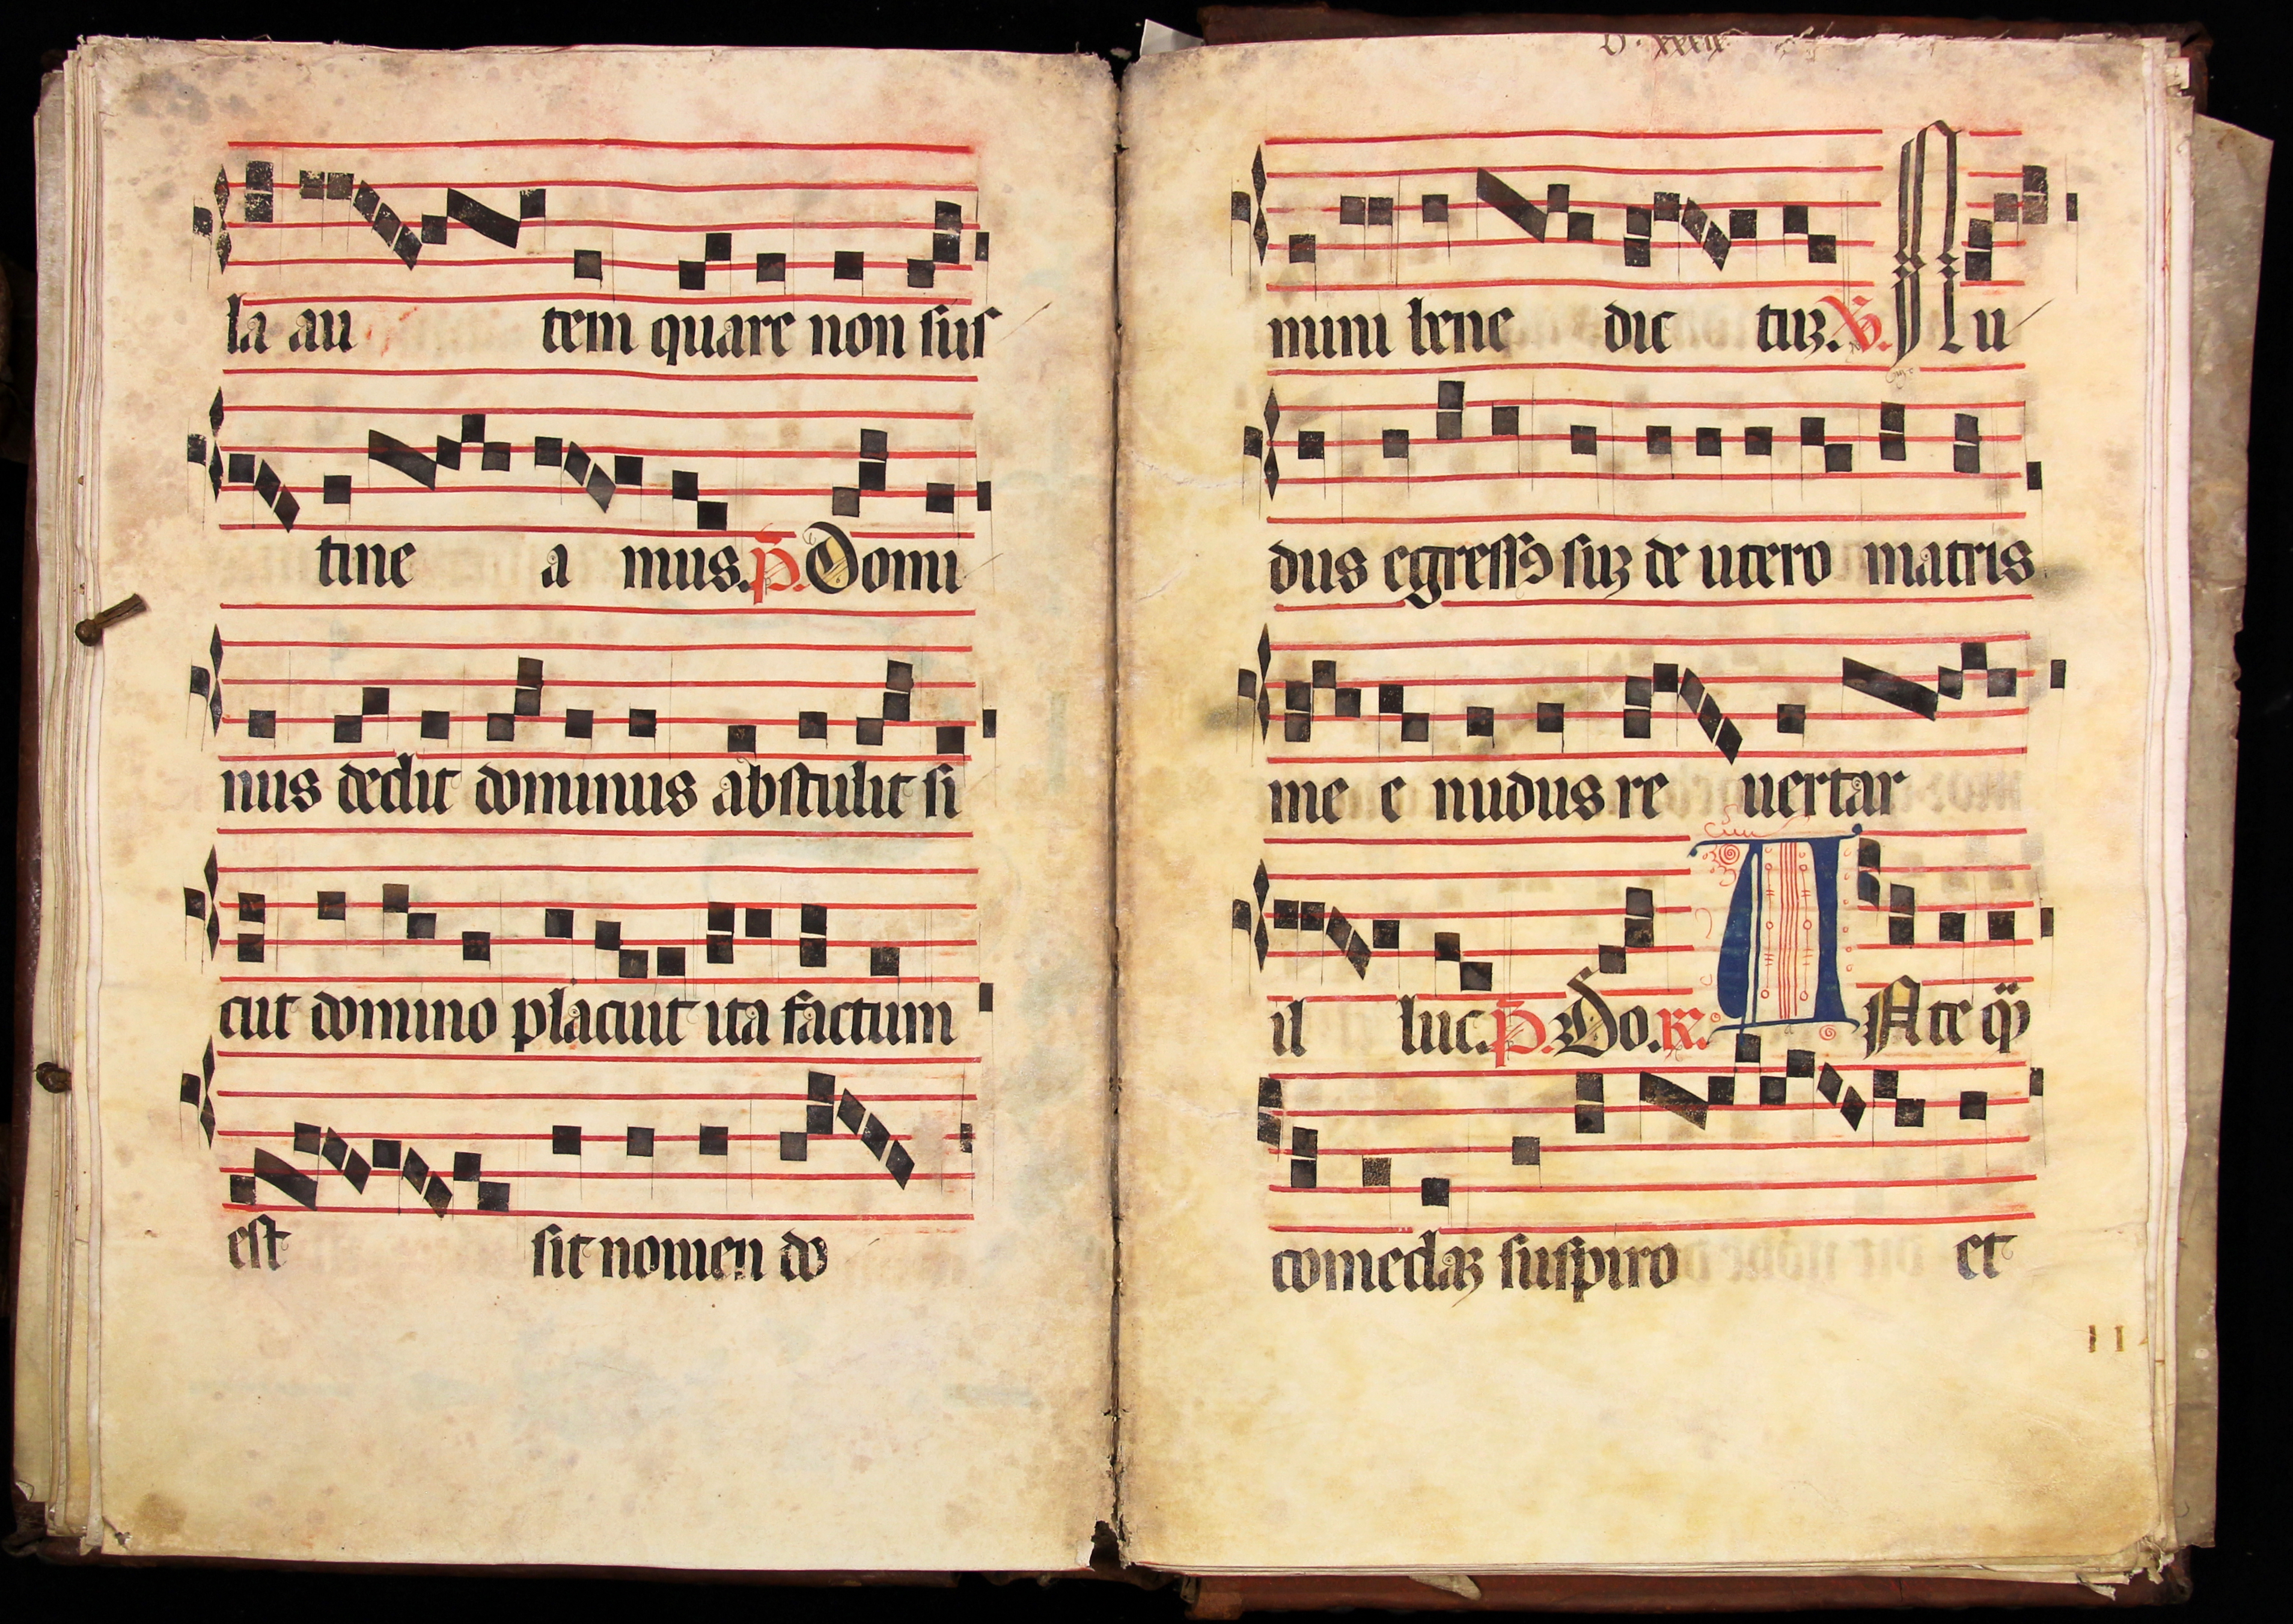 la au tem quare non sus
tine a mus. p. Domi
nus dedit dominus abstulit si
cut domino placuit ita factum
est sit nomen do
mini bene dic tuz. V. Nu
dus egressꝰ suz de utero matris
me e nudus re uertar
il luc. p. Do. R. Ante qͣ
comedaz suspiro et
11